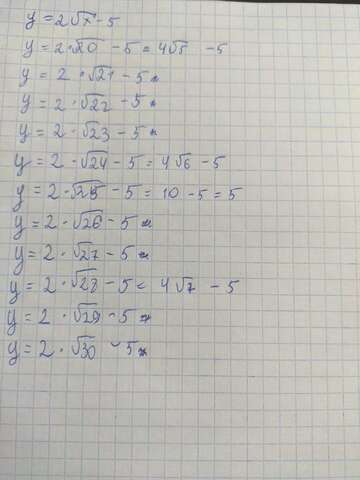 y = 2√x - 5
y = 2·√20 - 5 = 4√5 - 5
y = 2·√21 - 5
y = 2·√22 - 5
y = 2·√23 - 5
y = 2·√24 - 5 = 4√6 - 5
y = 2·√25 - 5 = 10 - 5 = 5
y = 2·√26 - 5
y = 2·√27 - 5
y = 2·√28 - 5 = 4√7 - 5
y = 2·√29 - 5
y = 2·√30 - 5